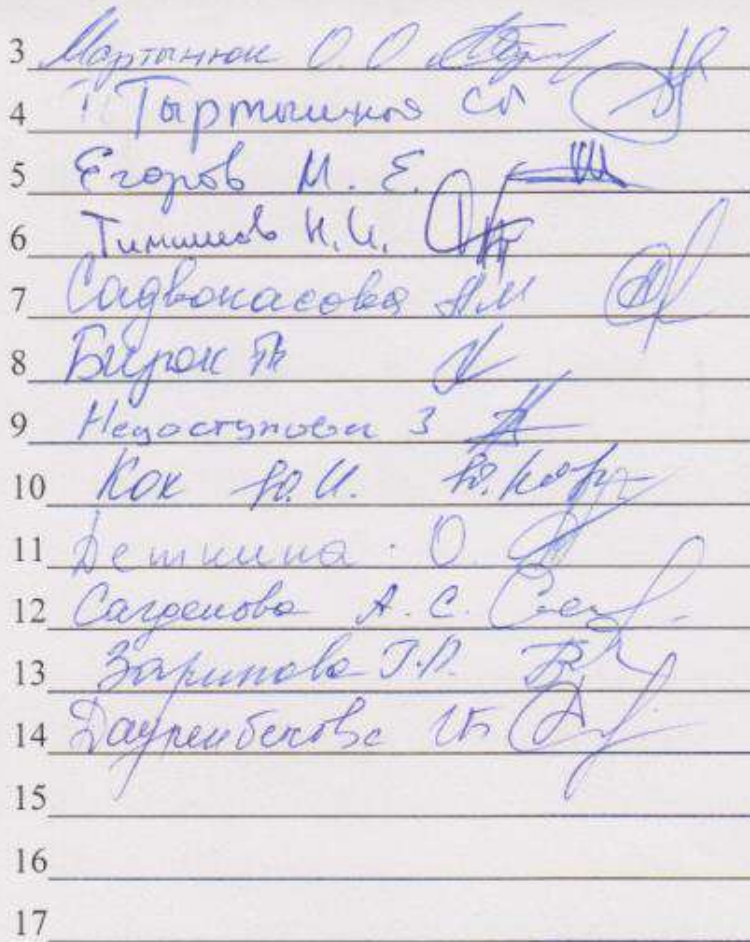 3 Мартынюк О.О
4 Тыртышная СА
5 Егоров М. Е.
6 Тимишев Н.И.
7 Садвокасова АМ
8 Бирюк
9 Недоступова З
10 Кох Ю.И.
11 Деткина О
12 Сагденова А.С.
13 Зарипова Г.Р.
14 Даупенбекова ГБ
15
16
17